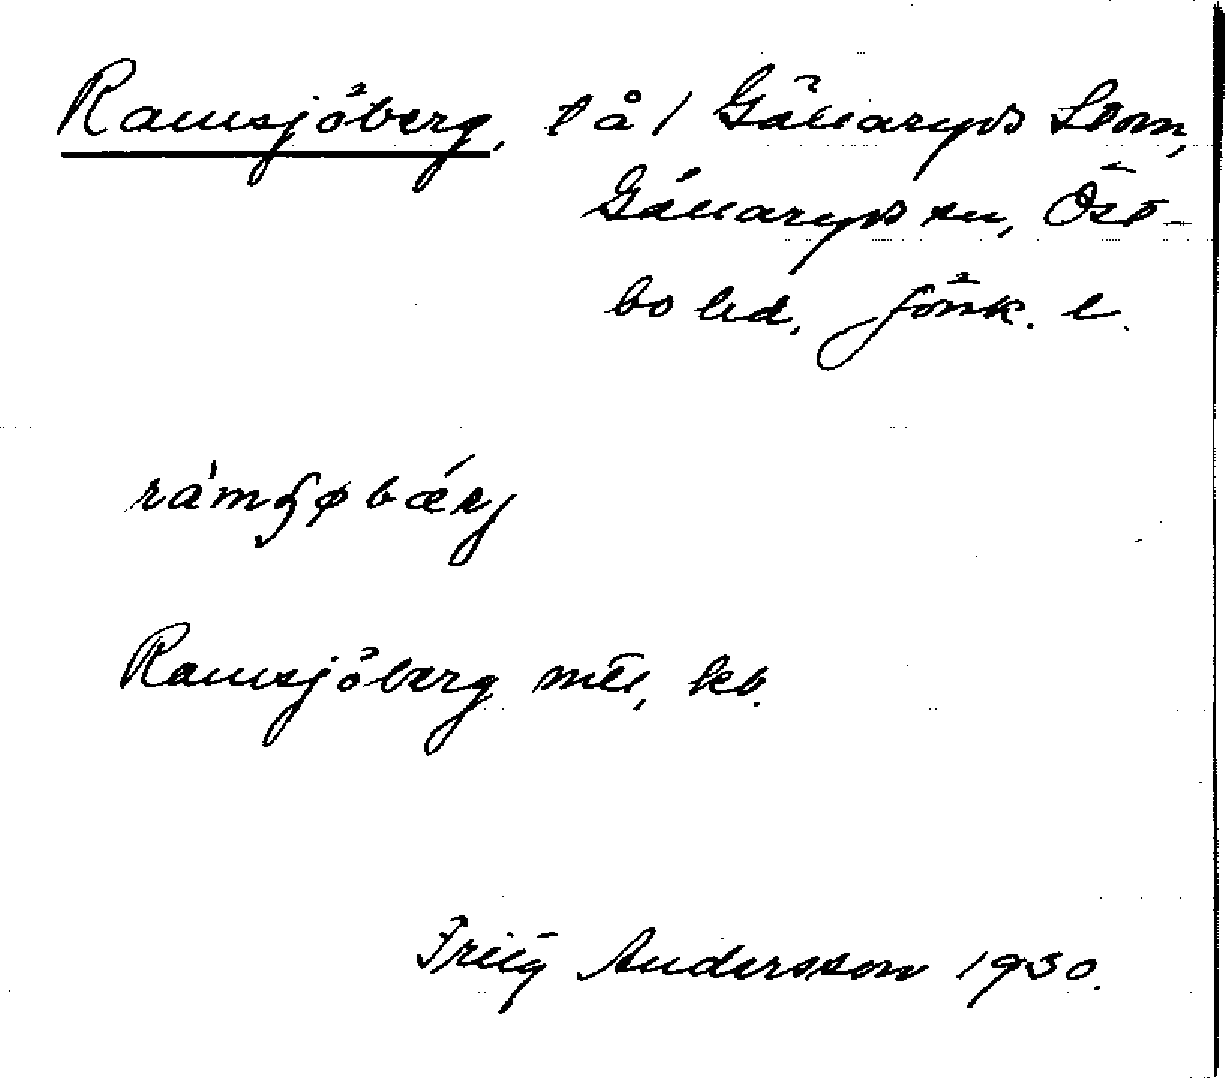 Ramsjöberg, l å 1 Gällaryds Stom,
Gällaryds sn, Öst-
bo hd, Jönk. l.
ràmʃøbærj
Ramsjöberg mtl, kb.
Andersson 1930.